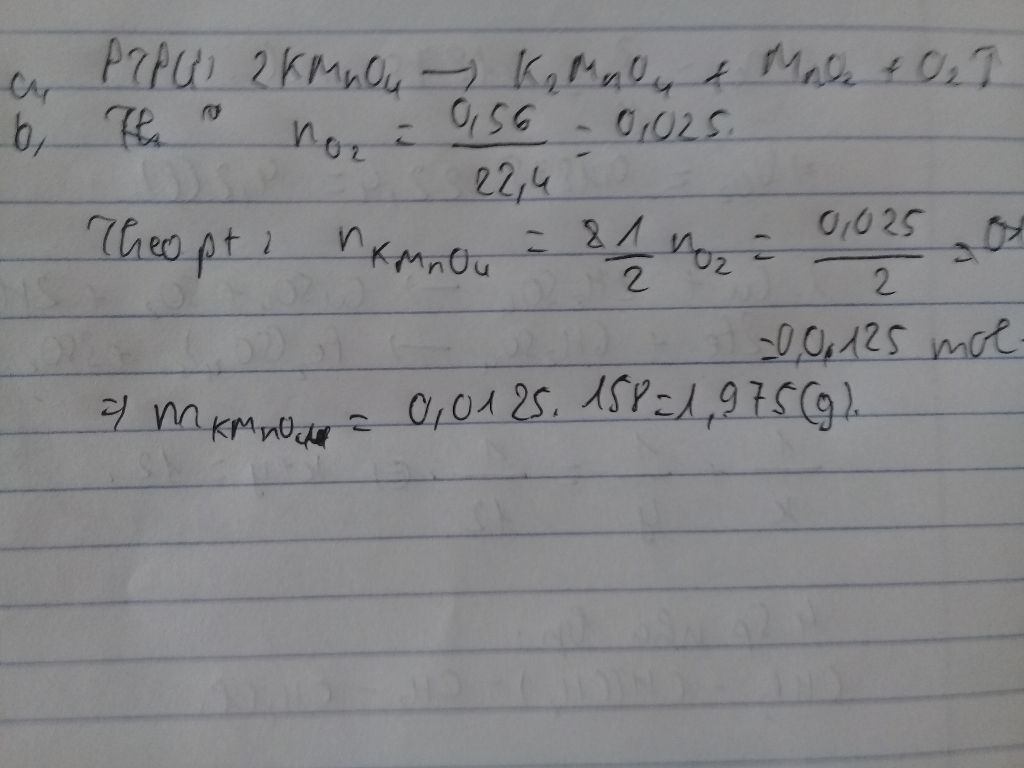 a, PTPƯ: 2KMnO4 → K2MnO4 + MnO2 + O2↑
b, nO2 = 0,56 / 22,4 = 0,025.
Theo pt: nKMnO4 = 1/2 nO2 = 0,025 / 2 =
=0,0125 mol
=> mKMnO4 = 0,0125. 158=1,975(g).